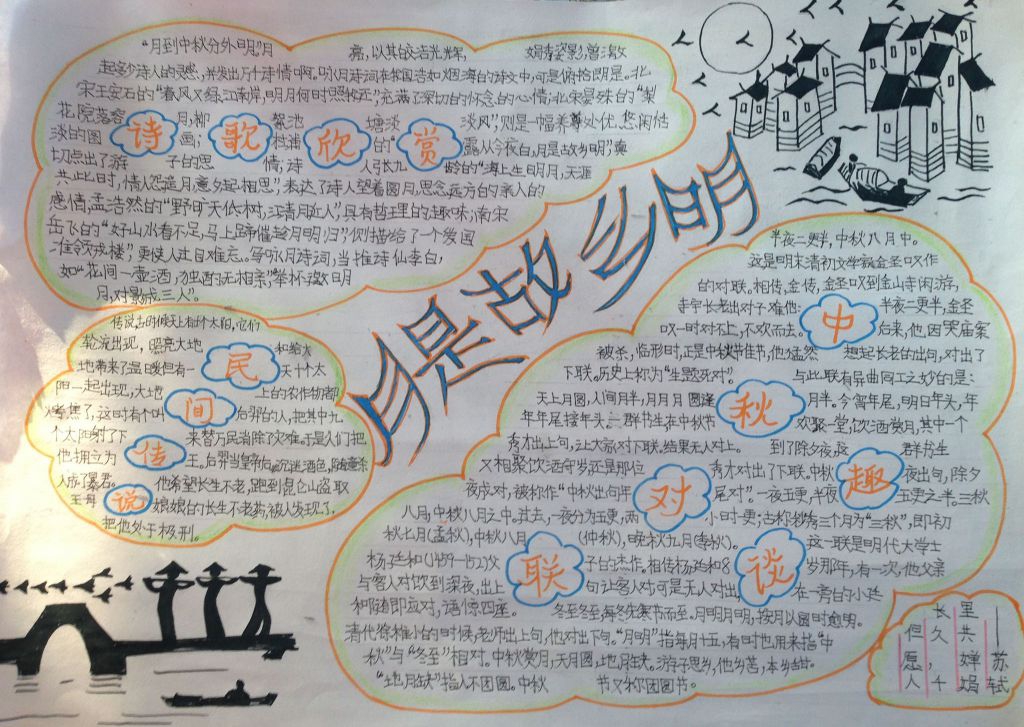 月是故乡明
诗歌欣赏
“月到中秋分外明”,月 亮,以其皎洁光辉, 娟秀姿影,曾激
起多少诗人的灵感,并发出万千诗情啊。咏月诗词在我国浩如烟海的诗文中,可是俯拾即是。北
宋王安石的“春风又绿江南岸,明月何时照我还”,充满了深切的怀念的心情;北宋晏殊的“梨
花院落溶 月,柳 絮池 塘淡 淡风”,则是一幅养尊处优、悠闲恬
淡的图 画; 的“ 露从今夜白,月是故乡明”,真
切点出了游 子的思 情;诗 人张九 龄的“海上生明月,天涯
共此时,情人怨遥月,意夕起相思”,表达了诗人望着圆月,思念远方的亲人的
感情,孟浩然的“野旷天低树,江清月近人”,具有哲理的趣味;南宋
岳飞的“好山水看不足,马上蹄催趁月明归”,则描绘了一个爱国
更使人过目难忘。写咏月诗词,当推诗仙李白,
如“花间一壶酒,独酌无相亲”,“举杯邀明
月,对影成三人”。
民间传说
传说古时候天上有十个太阳,它们
轮流出现,照亮大地 和给大
地带来了温暖但有一 天十个太
阳一起出现,大地 上的农作物都
烤焦了,这时有个叫 后羿的人,把其中九
个太阳射了下 来替万民消除了灾难。于是人们把
他拥立为 王。后羿当皇帝后,沉迷酒色,随意杀
人成了暴君。 他希望长生不老,跑到昆仑山盗取
王母 娘娘的长生不老药,被人发现了,
把他处于极刑。
中秋对联趣谈
半夜二更半,中秋八月中。
这是明末清初文学家金圣叹作
的对联。相传,金传,金圣叹到金山寺闲游,
寺宁长老出对子难他: 半夜二更半,金圣
叹一时对不上,不欢而去。 后来,他因哭庙案
被杀,临形时,正是中秋节佳节,他猛然 想起长老的出句,对出了
下联。历史上称为“生题死对”。 与此联有异曲同工之妙的是:
天上月圆,人间月半,月月月圆逢 月半。今宵年尾,明日年头,年
年年尾接年头。一群书生在中秋节 欢聚一堂,饮酒赏月,其中一个
秀才出上句,让大家对下联,结果无人对上。 到了除夕夜,这 群书生
又相聚饮酒守岁还是那位 秀才对出了下联。中秋 夜出句,除夕
夜成对,被称作“中秋出句年 尾对”。一夜五更,半夜 五更之半。三秋
八月,中秋八月之中。过去,一夜分为五更,两 小时一更;古称秋有三个月为“三秋”,即初
秋七月(孟秋),中秋八月 (仲秋),晚秋九月(季秋)。 这一联是明代大学士
杨廷和(1459-1529)父 子的杰作。相传杨廷和8 岁那年,有一次,他父亲
与客人对饮到深夜,出上 句让客人对,可是无人对出, 在一旁的小廷
和随即应对,语惊四座。 冬至冬至,每冬先寒节而至。月明月明,按月以圆时愈明。
清代徐稚小的时候,老师出上句,他对出下句。“月明”指每月十五,有时也用来指“中
秋”与“冬至”相对。中秋赏月,天月圆,地月缺。游子思乡,他乡苦,本乡甜。
“地月缺”指人不团圆。中秋 节又称团圆节。
但愿人
长久,千
里共婵娟
——苏轼